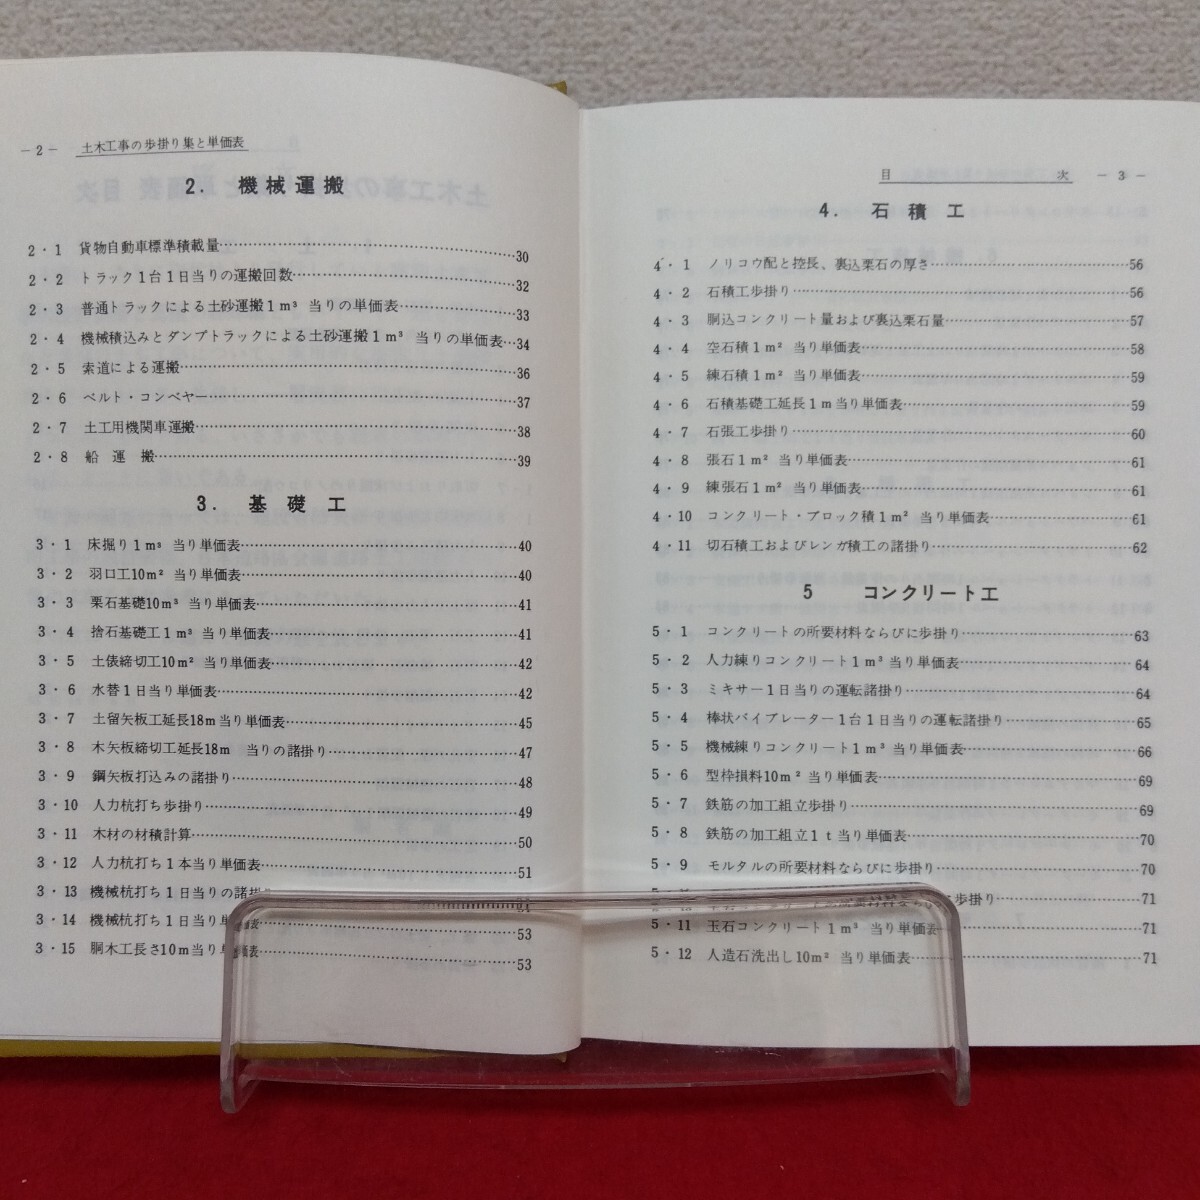 －2－ 土木工事の歩掛り集と単価表
2. 機械運搬
2・1 貨物自動車標準積載量……30
2・2 トラック1台1日当りの運搬回数……32
2・3 普通トラックによる土砂運搬1m³ 当りの単価表……33
2・4 機械積込みとダンプトラックによる土砂運搬1m³ 当りの単価表…34
2・5 索道による運搬……36
2・6 ベルト・コンベヤー……37
2・7 土工用機関車運搬……38
2・8 船運搬……39
3. 基礎工
3・1 床掘り1m³ 当り単価表……40
3・2 羽口工10m² 当り単価表……40
3・3 栗石基礎10m³ 当り単価表……41
3・4 捨石基礎工1m³ 当り単価表……41
3・5 土俵締切工10m² 当り単価表……42
3・6 水替1日当り単価表……42
3・7 土留矢板工延長18m当り単価表……45
3・8 木矢板締切工延長18m 当りの諸掛り……47
3・9 鋼矢板打込みの諸掛り……48
3・10 人力杭打ち歩掛り……49
3・11 木材の材積計算……50
3・12 人力杭打ち1本当り単価表……51
3・13 機械杭打ち1日当りの諸掛り……
3・14 機械杭打ち1日当り単価表……53
3・15 胴木工長さ10m当り単価表……53
目次 －3－
4. 石積工
4・1 ノリコウ配と控長、裏込栗石の厚さ……56
4・2 石積工歩掛り……56
4・3 胴込コンクリート量および裏込栗石量……57
4・4 空石積1m² 当り単価表……58
4・5 練石積1m² 当り単価表……59
4・6 石積基礎工延長1m当り単価表……59
4・7 石張工歩掛り……60
4・8 張石1m² 当り単価表……61
4・9 練張石1m² 当り単価表……61
4・10 コンクリート・ブロック積1m² 当り単価表……61
4・11 切石積工およびレンガ積工の諸掛り……62
5 コンクリート工
5・1 コンクリートの所要材料ならびに歩掛り……63
5・2 人力練りコンクリート1m³当り単価表……64
5・3 ミキサー1日当りの運転諸掛り……64
5・4 棒状バイブレーター1台1日当りの運転諸掛り……65
5・5 機械練りコンクリート1m³ 当り単価表……66
5・6 型枠損料10m² 当り単価表……69
5・7 鉄筋の加工組立歩掛り……69
5・8 鉄筋の加工組立1t当り単価表……70
5・9 モルタルの所要材料ならびに歩掛り……70
歩掛り……71
5・11 玉石コンクリート1m³ 当り単価表……71
5・12 人造石洗出し10m² 当り単価表……71